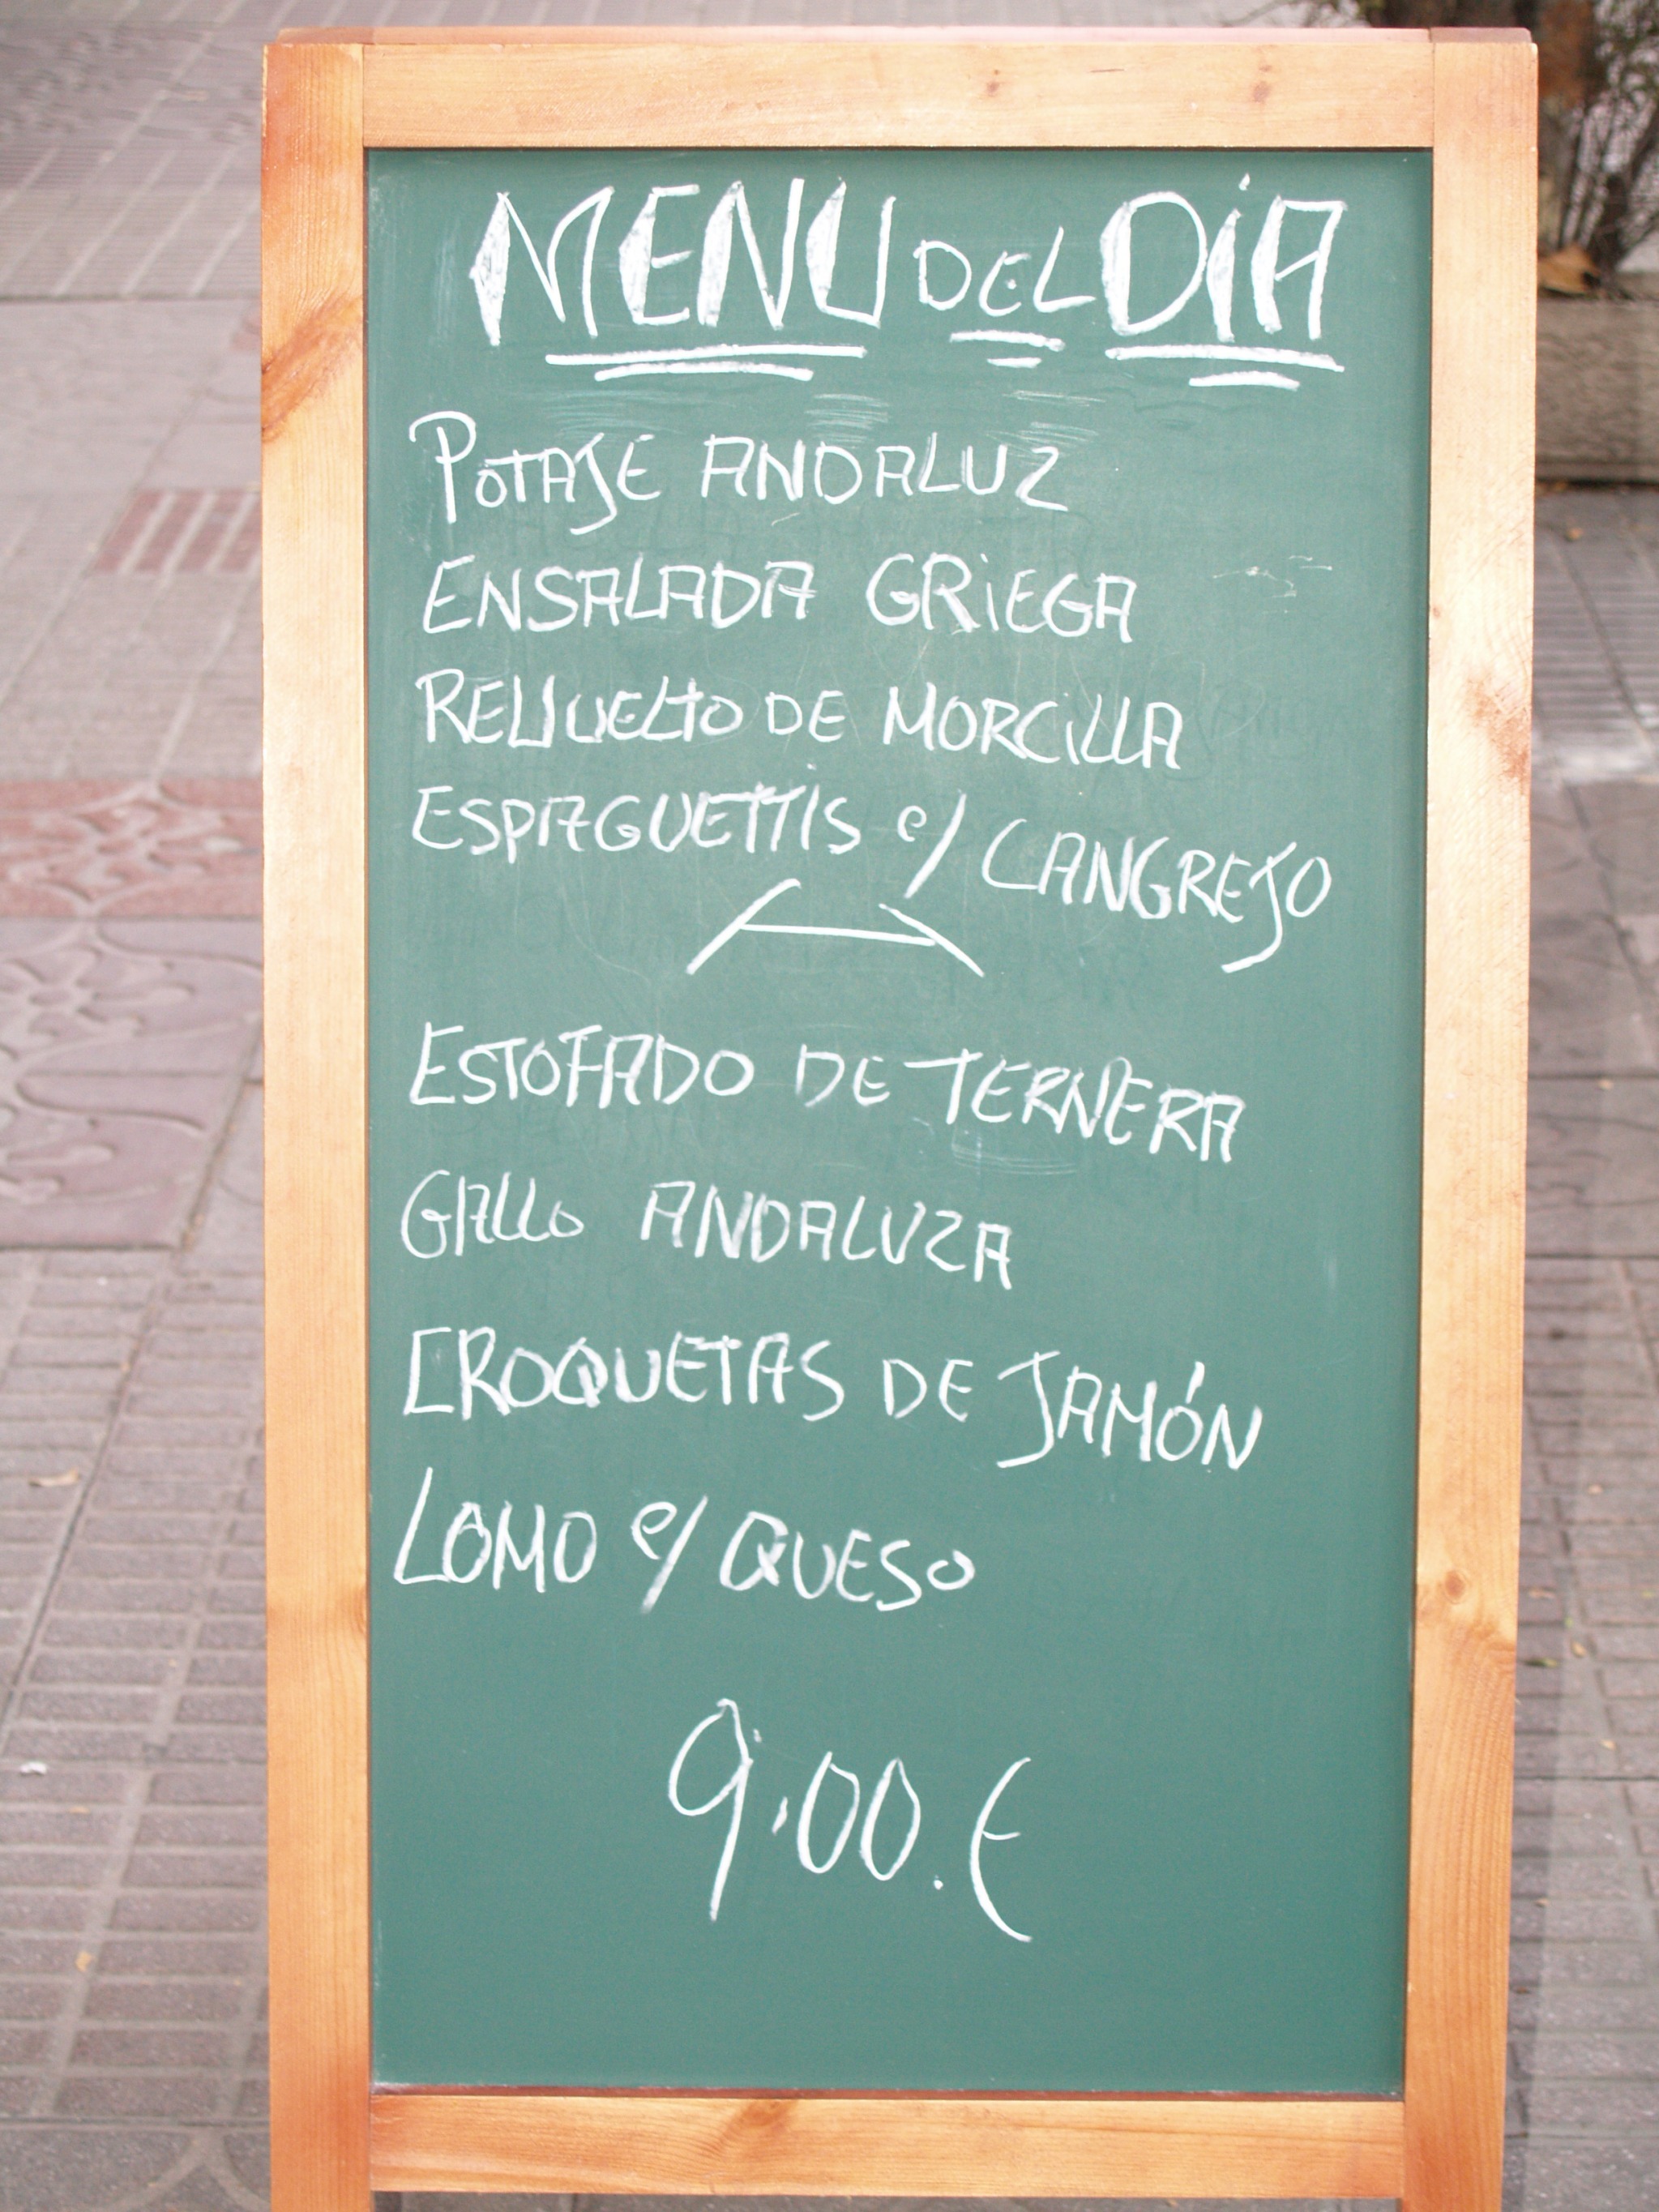 MENU DEL DÍA
POTAJE ANDALUZ
ENSALADA GRIEGA
REVUELTO DE MORCILLA
ESPAGUETTIS c/ CANGREJO
ESTOFADO DE TERNERA
GALLO ANDALUZA
CROQUETAS DE JAMÓN
LOMO c/ QUESO
9,00.€